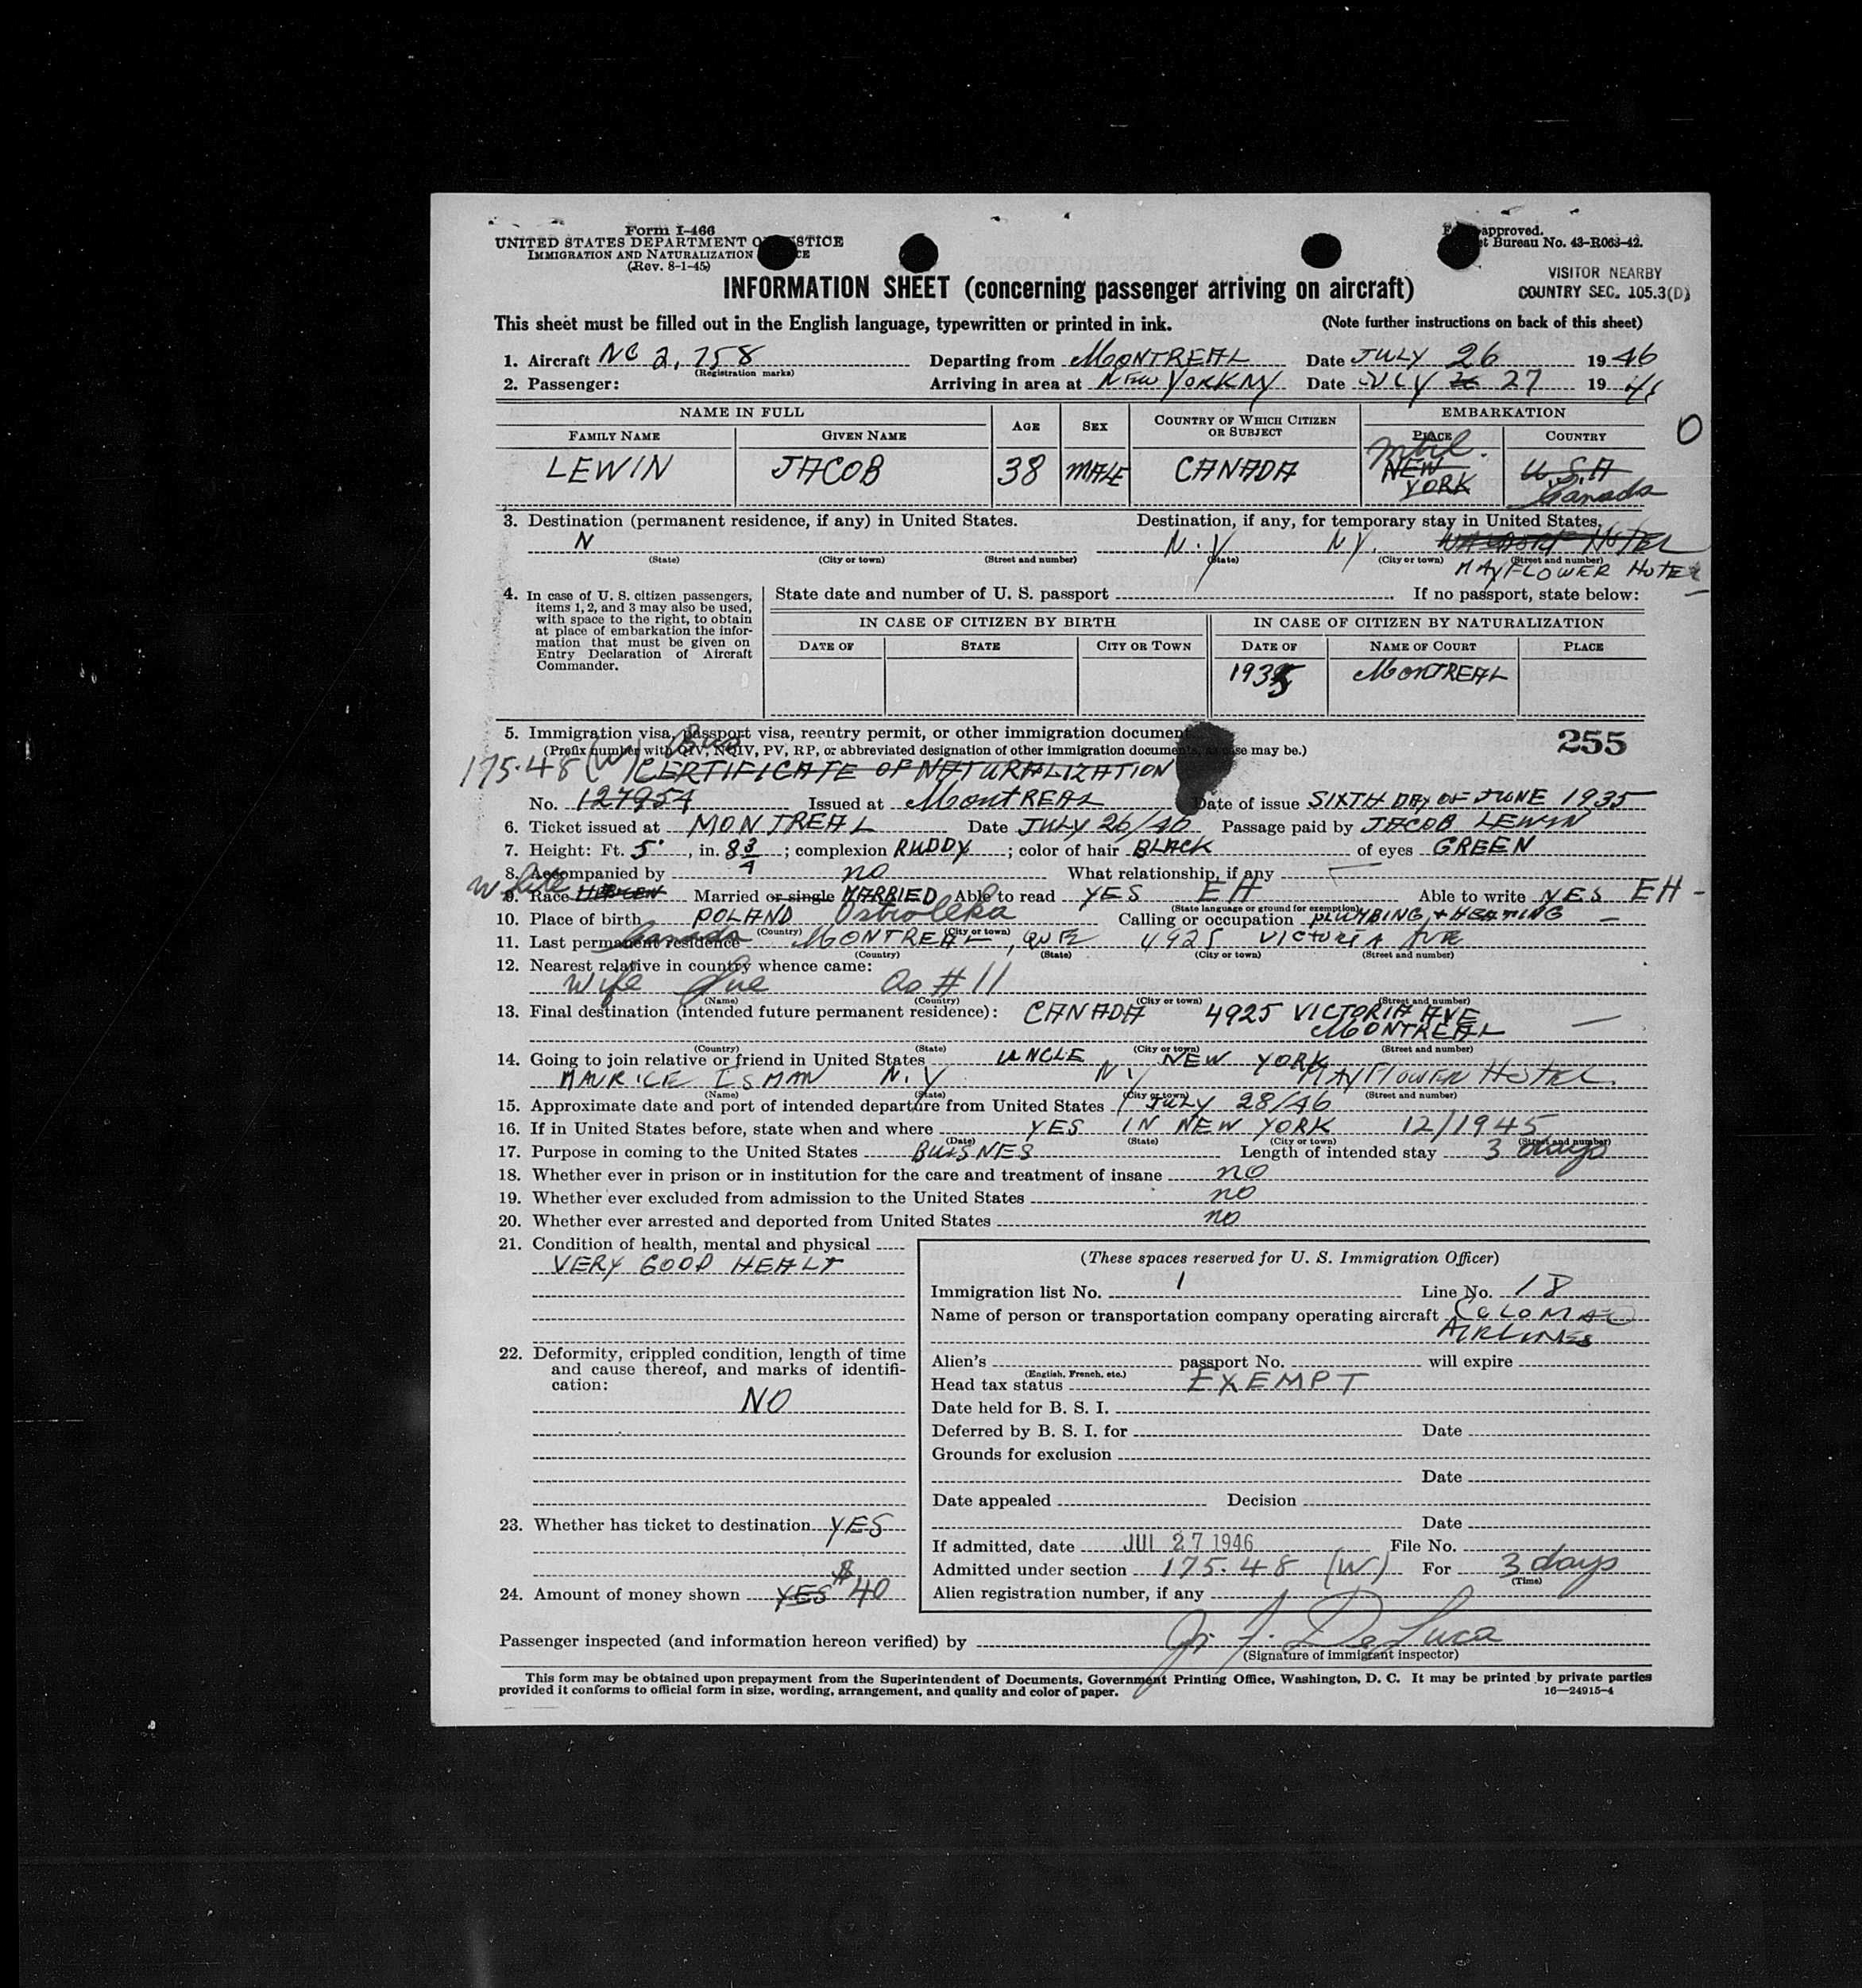 Form I-466
UNITED STATES DEPARTMENT OF JUSTICE
IMMIGRATION AND NATURALIZATION
(Rev. 8-1-45)
approved.
Bureau No. 43-R063-42.
VISITOR NEARBY
COUNTRY SEC. 105.3(D)
INFORMATION SHEET (concerning passenger arriving on aircraft)
This sheet must be filled out in the English language, typewritten or printed in ink. (Note further instructions on back of this sheet)
1. Aircraft NC 2,758 Departing from MONTREAL Date JULY 26 1946
(Registration marks)
2. Passenger: Arriving in area at NEW YORK NY Date JULY 27 19
NAME IN FULL AGE SEX COUNTRY OF WHICH CITIZEN OR SUBJECT EMBARKATION
FAMILY NAME GIVEN NAME PLACE COUNTRY
0
Mtrl.
LEWIN JACOB 38 MALE CANADA NEW YORK U.S.A
Canada
3. Destination (permanent residence, if any) in United States. Destination, if any, for temporary stay in United States.
N N.Y N.Y. HOTEL
(State) (City or town) (Street and number) (State) (City or town) (Street and number)
MAYFLOWER HOTEL
4. In case of U. S. citizen passengers,
items 1, 2, and 3 may also be used,
with space to the right, to obtain
at place of embarkation the infor-
mation that must be given on
Entry Declaration of Aircraft
Commander.
State date and number of U. S. passport If no passport, state below:
IN CASE OF CITIZEN BY BIRTH IN CASE OF CITIZEN BY NATURALIZATION
DATE OF STATE CITY OR TOWN DATE OF NAME OF COURT PLACE
1935 MONTREAL
5. Immigration visa, passport visa, reentry permit, or other immigration document
255
(Prefix number with QIV, NQIV, PV, RP, or abbreviated designation of other immigration documents, as case may be.)
175.48 (W) CERTIFICATE OF NATURALIZATION
No. 127954 Issued at MontREAL Date of issue SIXTH DAY OF JUNE 1935
6. Ticket issued at MONTREAL Date JULY 26/46 Passage paid by JACOB LEWIN
7. Height: Ft. 5', in. 8 3/4; complexion RUDDY; color of hair BLACK of eyes GREEN
8. Accompanied by no What relationship, if any
White
9. Race HEBREW Married or single MARRIED Able to read YES EH Able to write YES EH -
(State language or ground for exemption)
10. Place of birth POLAND Ostroleka Calling or occupation PLUMBING + HEATING
(Country) (City or town)
11. Last permanent residence Canada MONTREAL, QUE 4925 VICTORIA AVE
(Country) (State) (City or town) (Street and number)
12. Nearest relative in country whence came:
Wife Sue as # 11
(Name) (Country) (City or town) (Street and number)
13. Final destination (intended future permanent residence): CANADA 4925 VICTORIA AVE
MONTREAL
(Country) (State) (City or town) (Street and number)
14. Going to join relative or friend in United States UNCLE NEW YORK
MAURICE ISMAN N.Y N.Y MAYFLOWER HOTEL
(Name) (State) (City or town) (Street and number)
15. Approximate date and port of intended departure from United States JULY 28/46
16. If in United States before, state when and where YES IN NEW YORK 12/1945
(Date) (State) (City or town) (Street and number)
17. Purpose in coming to the United States BUISNES Length of intended stay 3 days
18. Whether ever in prison or in institution for the care and treatment of insane no
19. Whether ever excluded from admission to the United States no
20. Whether ever arrested and deported from United States no
21. Condition of health, mental and physical
VERY GOOD HEALT
22. Deformity, crippled condition, length of time
and cause thereof, and marks of identifi-
cation:
NO
23. Whether has ticket to destination YES
24. Amount of money shown YES $40
(These spaces reserved for U. S. Immigration Officer)
Immigration list No. 1 Line No. 18
Name of person or transportation company operating aircraft COLONIAL
AIRLINES
Alien's passport No. will expire
(English, French, etc.)
Head tax status EXEMPT
Date held for B. S. I.
Deferred by B. S. I. for Date
Grounds for exclusion
Date
Date appealed Decision
Date
If admitted, date JUL 27 1946 File No.
Admitted under section 175.48 (W) For 3 days
(Time)
Alien registration number, if any
Passenger inspected (and information hereon verified) by DeLuca
(Signature of immigrant inspector)
This form may be obtained upon prepayment from the Superintendent of Documents, Government Printing Office, Washington, D. C. It may be printed by private parties
provided it conforms to official form in size, wording, arrangement, and quality and color of paper. 16—24915-4